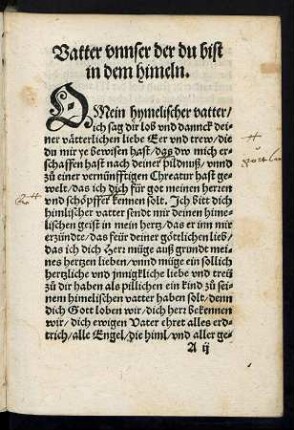 Vatter vnnser der du bist
in dem himeln.
O Mein hymelischer vatter/
ich sag dir lob vnd danck dei-
ner vätterlichen liebe Eer vnd trew/die
du mir ye bewisen hast/das du mich er-
schaffen hast nach deiner pildnuß/vnnd
zu einer vernünfftigen Chreatur hast ge-
welt/das ich dich für got meinen herren
vnd schöpffer kennen solt. Ich bitt dich
himlischer vatter sendt mir deinen hime-
lischen geist in mein hertz/das er inn mir
erzündte/das feür deiner götlichen lieb/
das ich dich Herr müge auß grundt mei-
nes hertzen lieben/vnnd müge ein sollich
hertzliche vnd jnnigkliche liebe vnd treü
zu dir haben als pillichen ein kind zu sei-
nem himelischen vatter haben solt/denn
dich Gott loben wir/dich herr bekennen
wir/dich ewigen Vater ehret alles erd-
trich/alle Engel/die himl/vnd aller ge-
A ij